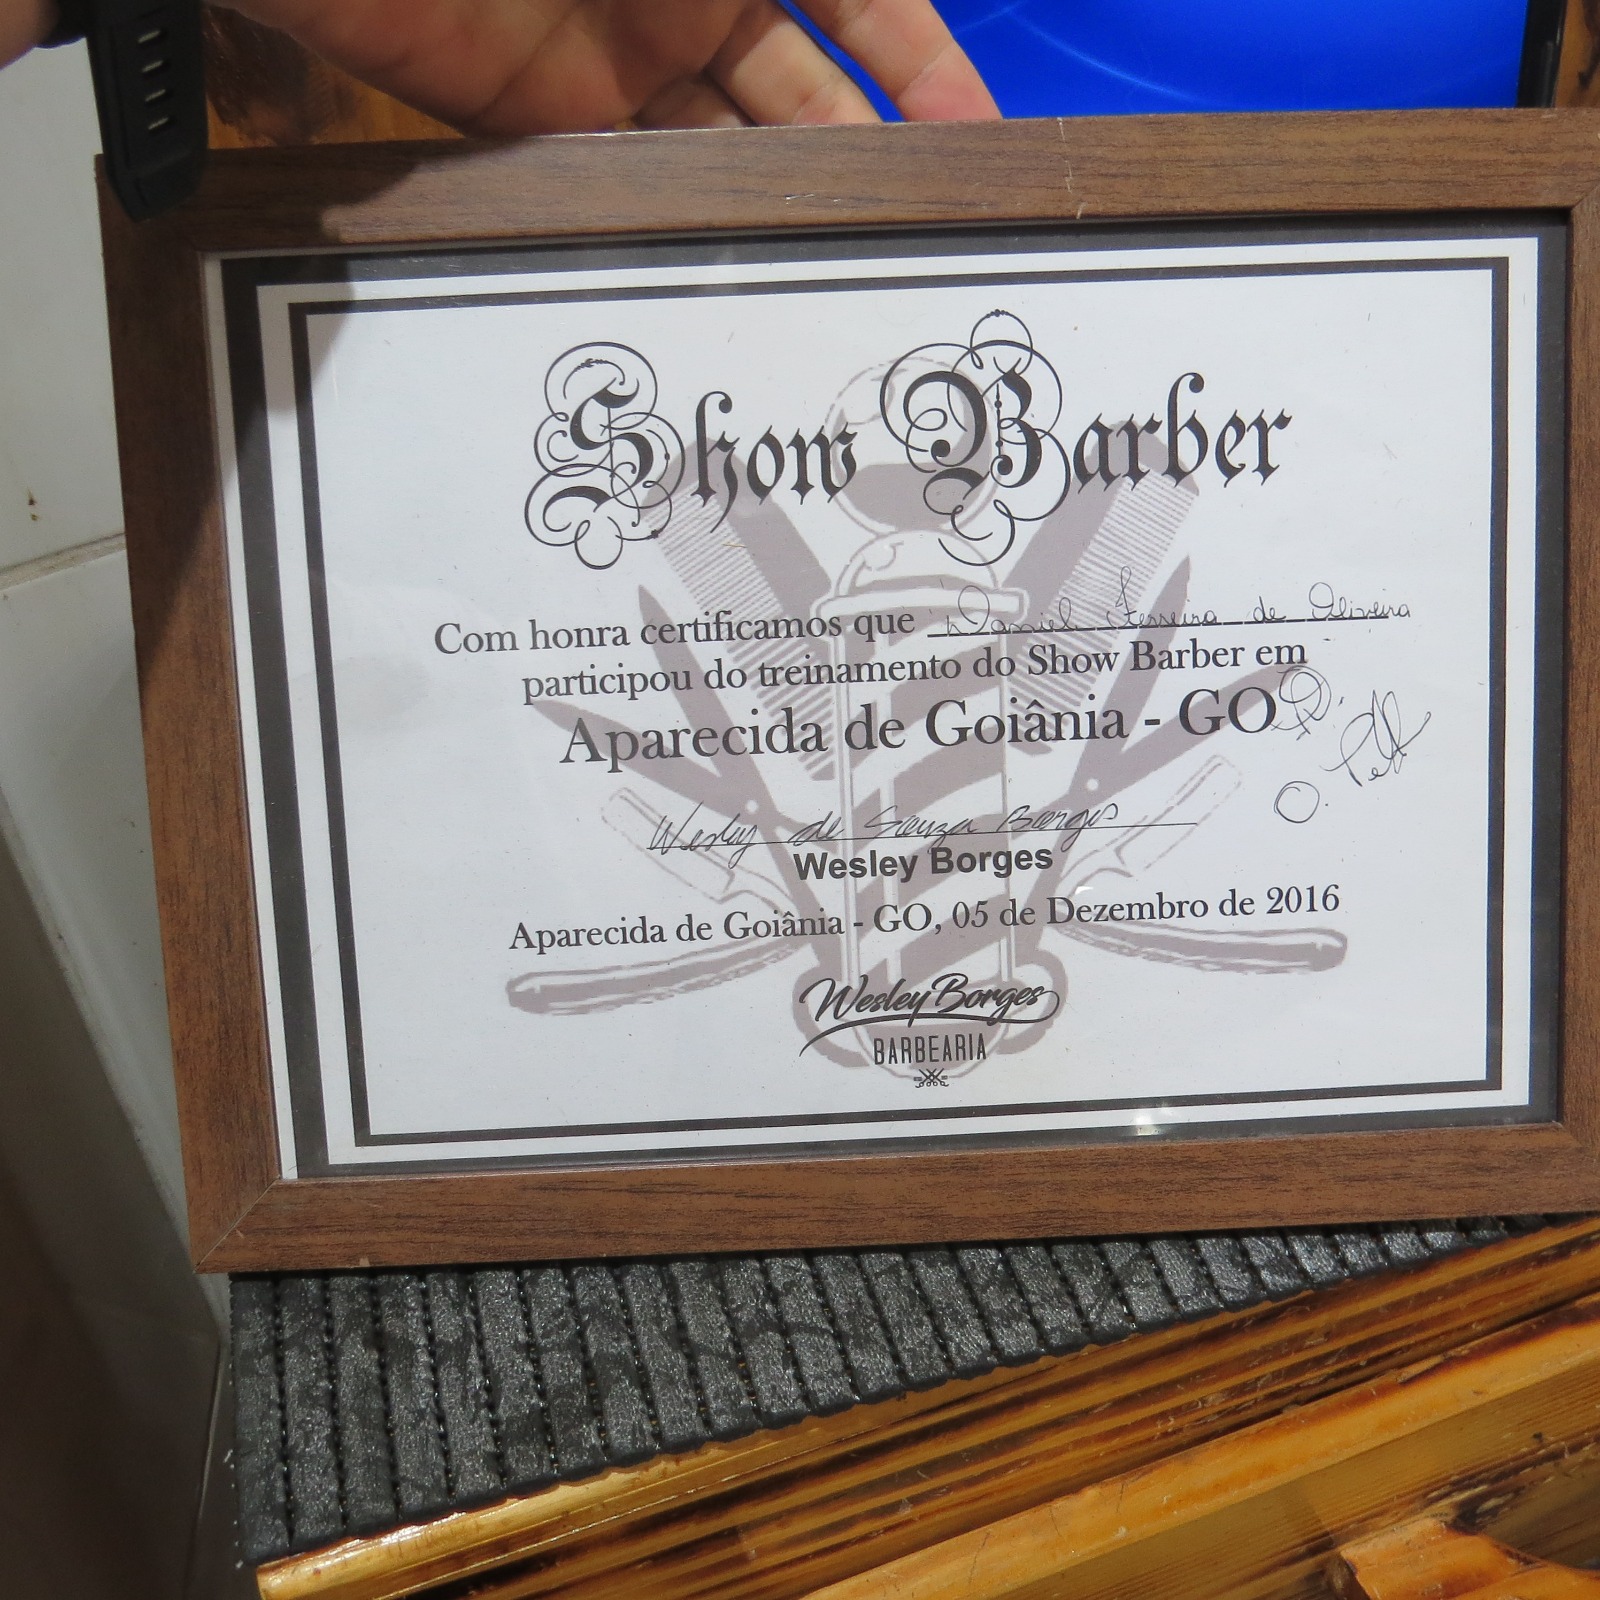 Show Barber
Com honra certificamos que Daniel Ferreira de Oliveira
participou do treinamento do Show Barber em
Aparecida de Goiânia - GO
Wesley de Souza Borges
Wesley Borges
Aparecida de Goiânia - GO, 05 de Dezembro de 2016
Wesley Borges
BARBEARIA